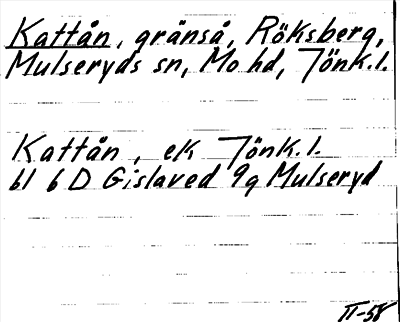 Kattån, gränså, Röksberg,
Mulseryds sn, Mo hd, Jönk.l.
Kattån, ek Jönk.l.
bl 6 D Gislaved 9g Mulseryd
II-58